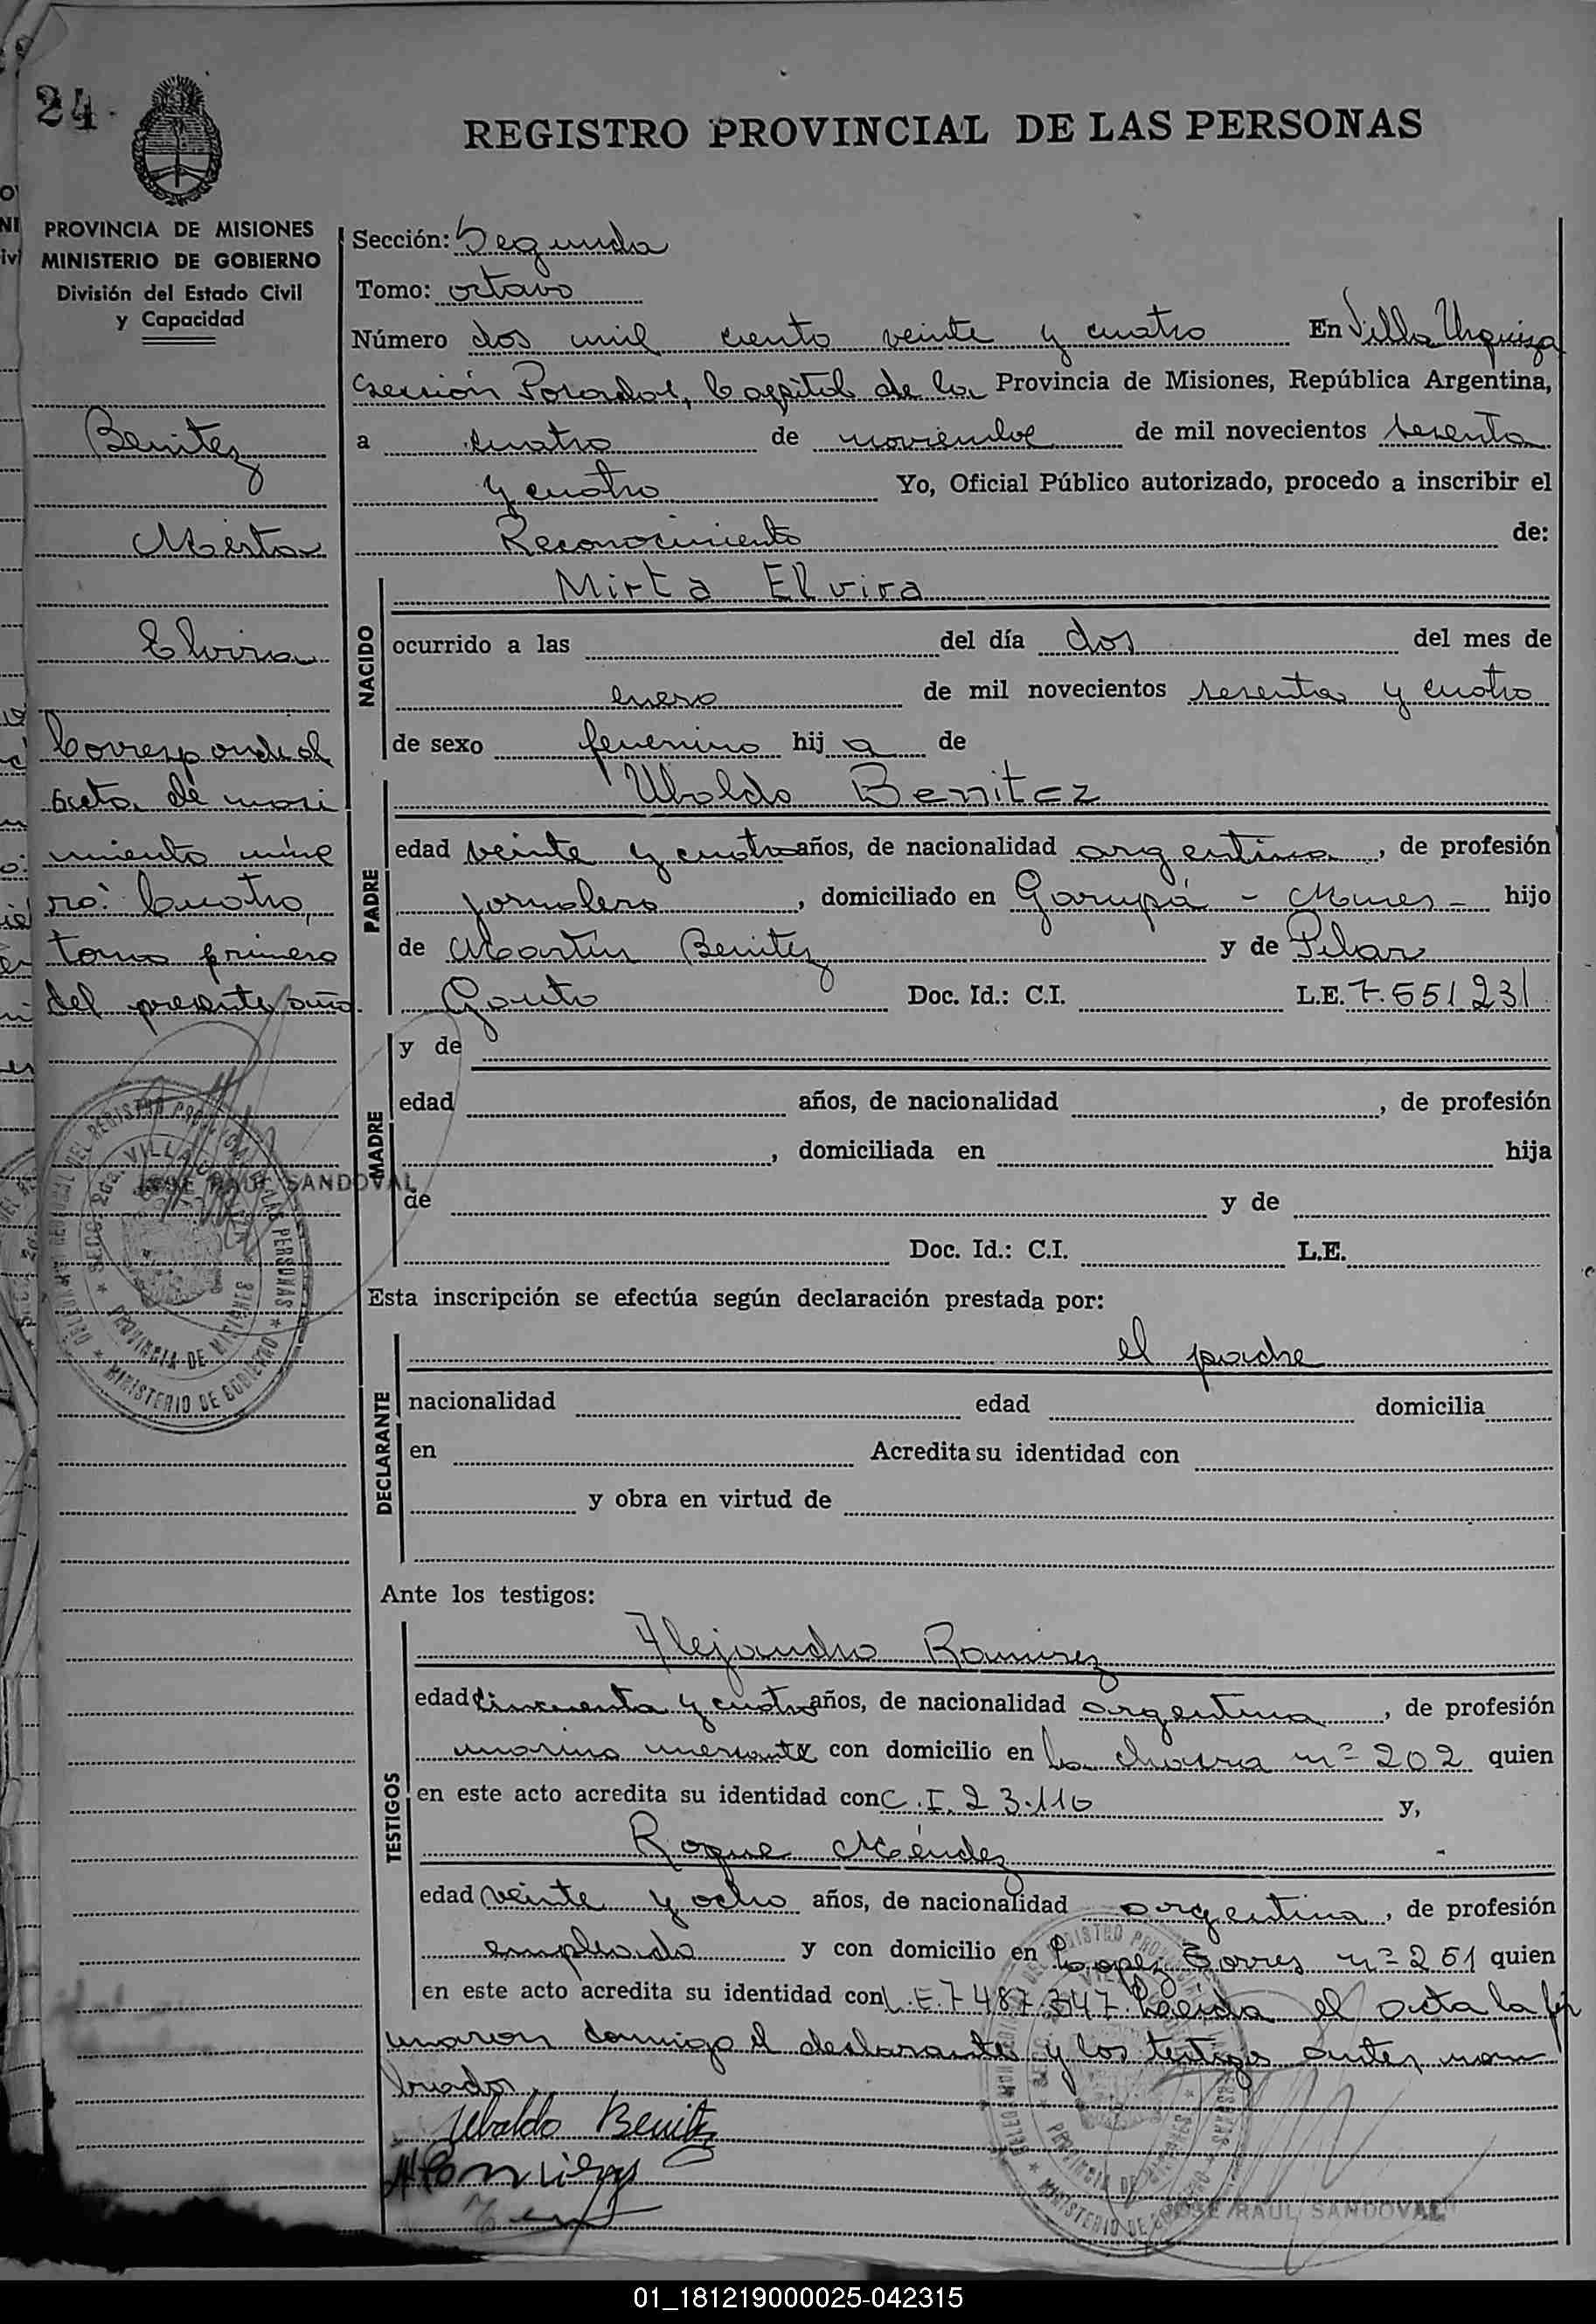 24.
REGISTRO PROVINCIAL DE LAS PERSONAS
PROVINCIA DE MISIONES
MINISTERIO DE GOBIERNO
División del Estado Civil
y Capacidad
Benitez
Mirta
Elvira
Corresponde al
acta de naci
miento núme
ro: Cuatro,
tomo primero
del presente año.
JOSE RAUL SANDOVAL
DELEGACION REGIONAL DEL REGISTRO PROVINCIAL DE LAS PERSONAS
SECC. 2da. VILLA URQUIZA
PROVINCIA DE MISIONES
MINISTERIO DE GOBIERNO
Sección: Segunda
Tomo: octavo
Número dos mil ciento veinte y cuatro En Villa Urquiza
sección Posadas, Capital de la Provincia de Misiones, República Argentina,
a cuatro de noviembre de mil novecientos sesenta
y cuatro Yo, Oficial Público autorizado, procedo a inscribir el
Reconocimiento de:
NACIDO
Mirta Elvira
ocurrido a las del día dos del mes de
enero de mil novecientos sesenta y cuatro
de sexo femenino hij a de
PADRE
Ubaldo Benitez
edad veinte y cuatro años, de nacionalidad argentina, de profesión
jornalero, domiciliado en Garupá - Mnes - hijo
de Martín Benitez y de Pilar
Gauto Doc. Id.: C.I. L.E. 7.551.231
MADRE
y de
edad años, de nacionalidad , de profesión
, domiciliada en hija
de y de
Doc. Id.: C.I. L.E.
Esta inscripción se efectúa según declaración prestada por:
DECLARANTE
el padre
nacionalidad edad domicilia
en Acredita su identidad con
y obra en virtud de
Ante los testigos:
TESTIGOS
Alejandro Ramirez
edad cincuenta y cuatro años, de nacionalidad argentina, de profesión
marino mercante con domicilio en la chacra nº 202 quien
en este acto acredita su identidad con C.I. 23.110 y,
Roque Méndez
edad veinte y ocho años, de nacionalidad argentina, de profesión
empleado y con domicilio en Lopez Torres nº 261 quien
en este acto acredita su identidad con L.E. 7487.347. Leída el acta la fir
maron conmigo el declarante y los testigos antes nom
brados.
Ubaldo Benitez
JOSE RAUL SANDOVAL
01_181219000025-042315